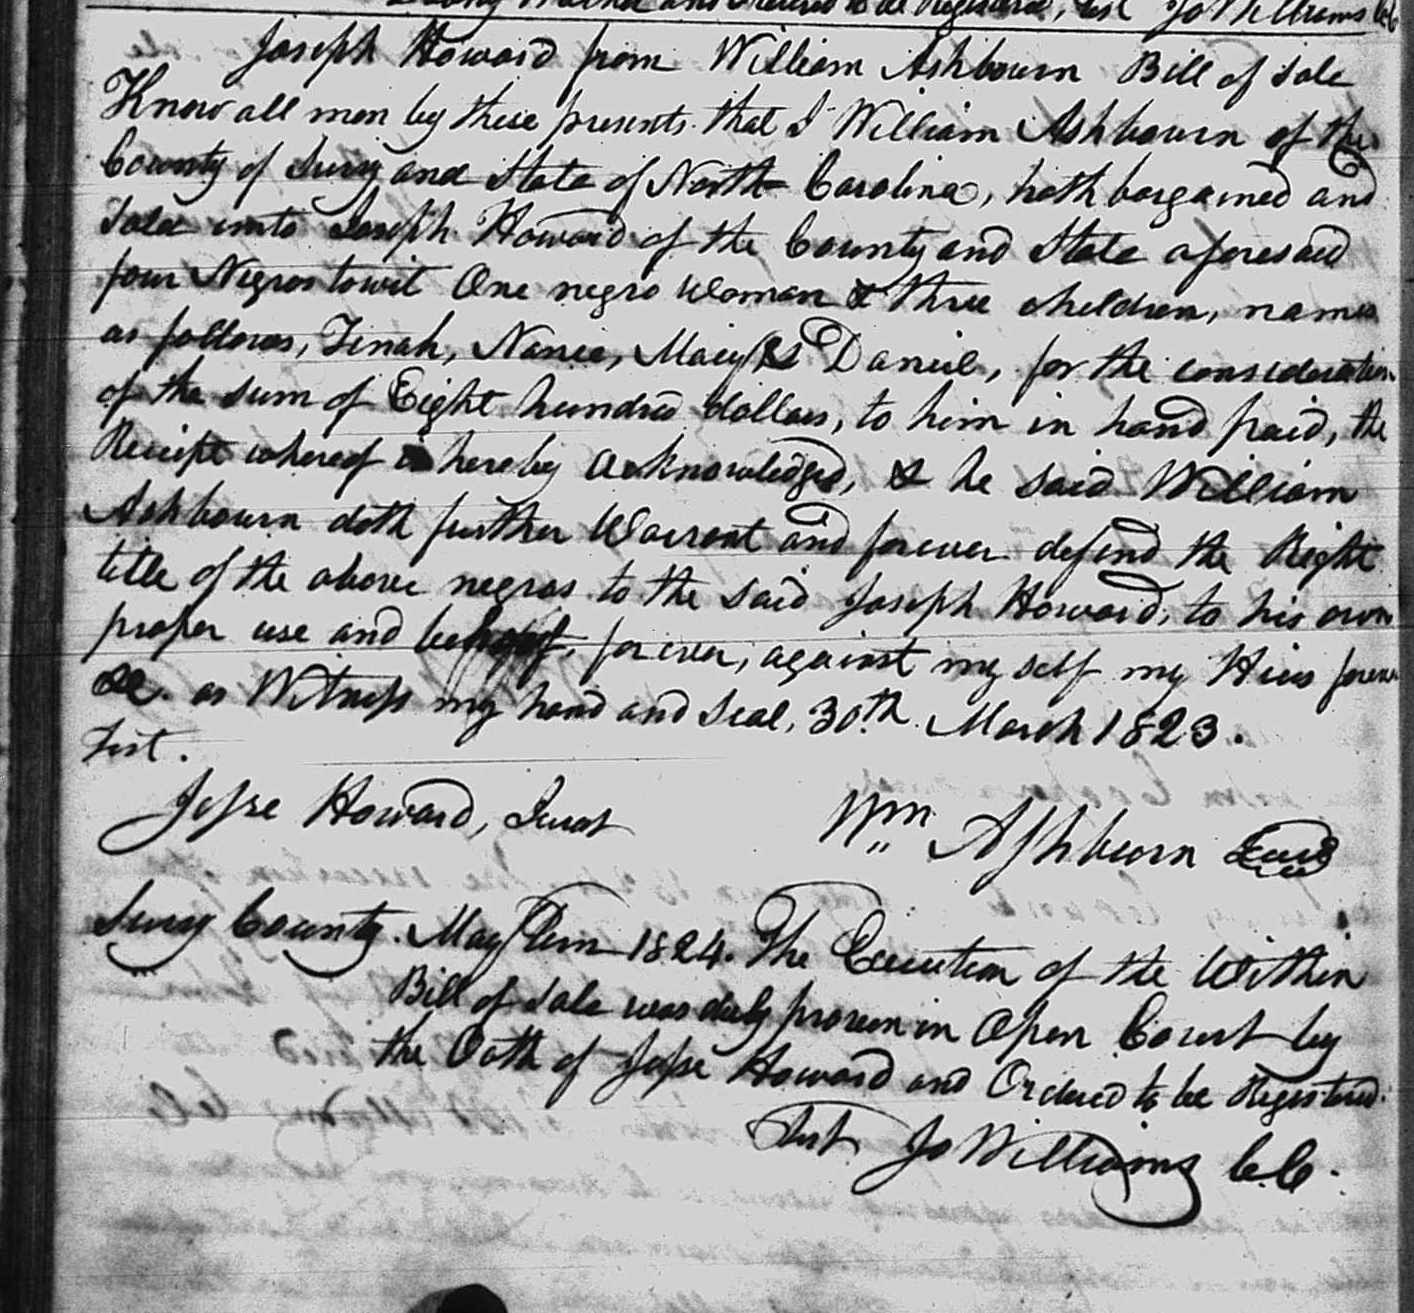 and Ordered to be Registered, Test Jo Williams CC
Joseph Howard from William Ashbourn Bill of Sale
Know all men by these presents that I William Ashbourn of the
County of Surry and State of North Carolina, hath bargained and
Sold unto Joseph Howard of the County and State aforesaid
four Negros towit One negro Woman & three children, names
as follows, Finah, Nance, Macy & Daniel, for the consideration
of the sum of Eight hundred dollars, to him in hand paid, the
Receipt whereof is hereby acknowledged, & he said William
Ashbourn doth further Warrant and forever defend the Right
title of the above negros to the said Joseph Howard, to his own
proper use and behoof, forever, against my self my Hiers forever
&c. as Witness my hand and Seal, 30th March 1823.
Test.
Jesse Howard, Jurat Wm Ashburn Seal
Surry County. May Term 1824. The Execution of the Within
Bill of Sale was duly proven in Open Court by
the Oath of Jesse Howard and Ordered to be Registered.
Test Jo Williams C.C.